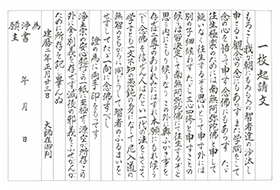 一枚起請文
もろこし我が朝にもろもろの智者達の沙汰し
申さるる観念の念にもあらず又学問をして念
の心を悟りて申す念仏にもあらずただ
往生極楽のためには南無阿弥陀仏と申して
疑いなく往生するぞと思いとりて申す外には
別の子細候わずただし三心四修と申すことの
候は皆決定して南無阿弥陀仏にて往生するぞと
思う内にこもり候なりこの外に奥ふかき事を
存ぜば二尊のあわれみにはずれ本願にもれ候べし
念仏を信ぜん人はたとい一代の法をよくよく
学すとも一文不知の愚鈍の身になして尼入道の
無智のともがらに同じうして智者のふるまいを
せずしてただ一向に念仏すべし
証の為に両手印をもってす
浄土宗の安心起行この一紙に至極せり源空が所存
この外に全く別義を存ぜず滅後の邪義をふせがんが
ために所存を記し畢んぬ
建暦二年正月二十三日 大師在御判
為
浄書 年 月 日
願主